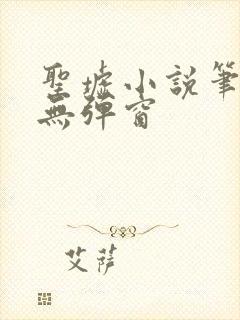 聖墟小說筆
無彈窗
艾薩